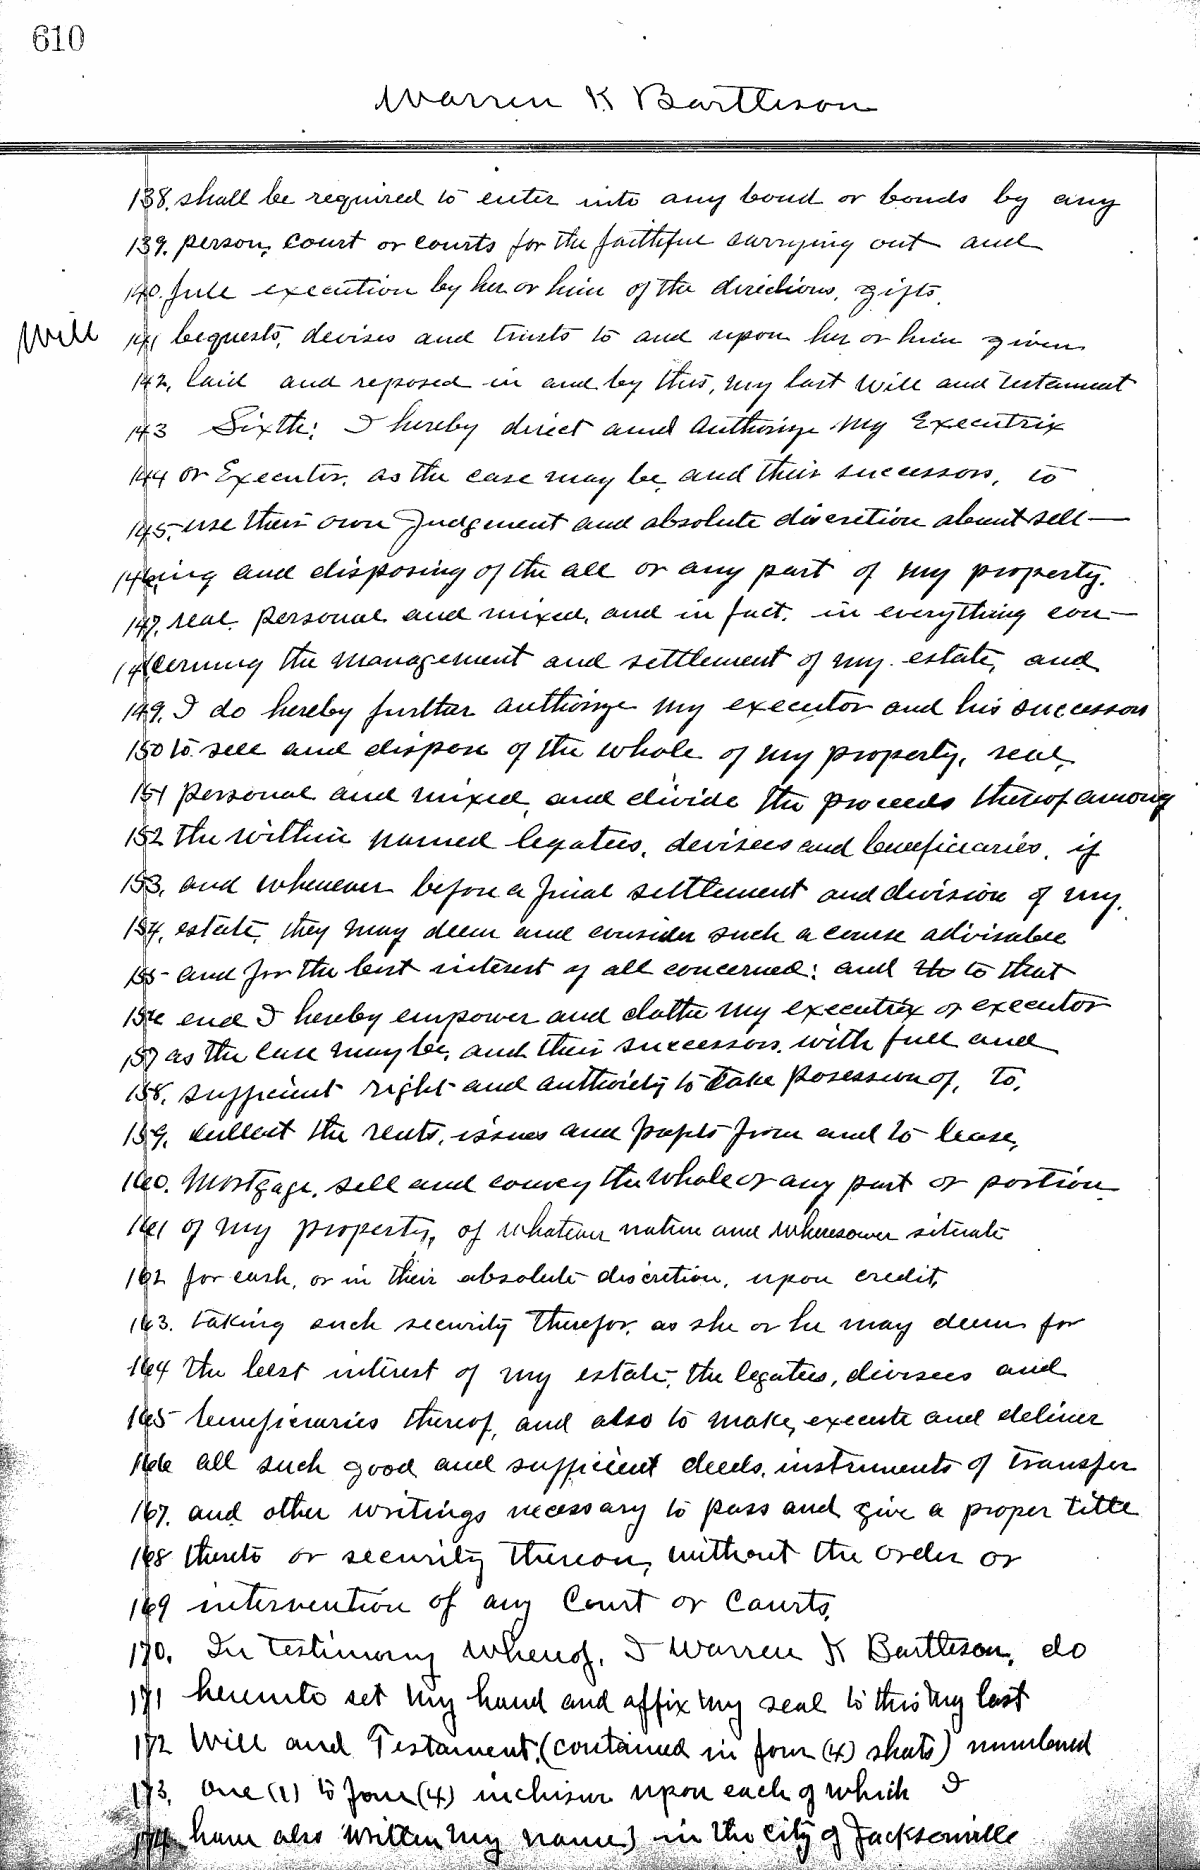 610
Warren K Bartleson
138. shall be required to enter into any bond or bonds by any
139. person, court or courts for the faithful carrying out and
140. full execution by her or him of the directions, gifts,
Will
141 bequests, devises and trusts to and upon her or him given
142. laid and reposed in and by this, my last Will and Testament
143 Sixth: I hereby direct and Authorize My Executrix
144 or Executor, as the case may be, and their successors, to
145. use their own Judgement and absolute discretion about sell—
146. ing and disposing of the all or any part of my property,
147. real, personal and mixed, and in fact, in everything con—
148 cerning the management and settlement of my estate, and
149. I do hereby further authorize my executor and his successors
150 to sell and dispose of the whole of my property, real,
151 personal and mixed, and divide the proceeds thereof among
152 the within named legatees, devisees and beneficiaries, if
153. and whenever before a final settlement and division of my
154. estate, they may deem and consider such a course advisable
155 and for the best interest of all concerned: and to that
156 end I hereby empower and clothe my executrix or executor
157 as the case may be, and their successors, with full and
158. sufficient right and authority to take posession of, to,
159. collect the rents, issues and profits from and to lease,
160. Mortgage, sell and convey the whole or any part or portion
161 of my property, of whatever nature and wheresower situate
162 for cash, or in their absolute discretion, upon credit,
163. taking such security therefor, as she or he may deem for
164 the best interest of my estate, the legatees, divisees and
165 beneficiaries thereof, and also to make, execute and deliver
166 all such good and sufficient deeds, instruments of transfer
167. and other writings necessary to pass and give a proper title
168 thereto or security thereon, without the order or
169 intervention of any Court or Courts,
170. In testimony whereof, I Warren K Bartleson, do
171 hereunto set my hand and affix my seal to this my last
172 Will and Testament, (contained in four (4) sheets) numbered
173, one (1) to four (4) inclusive upon each of which I
174 have also written my name) in the city of Jacksonville